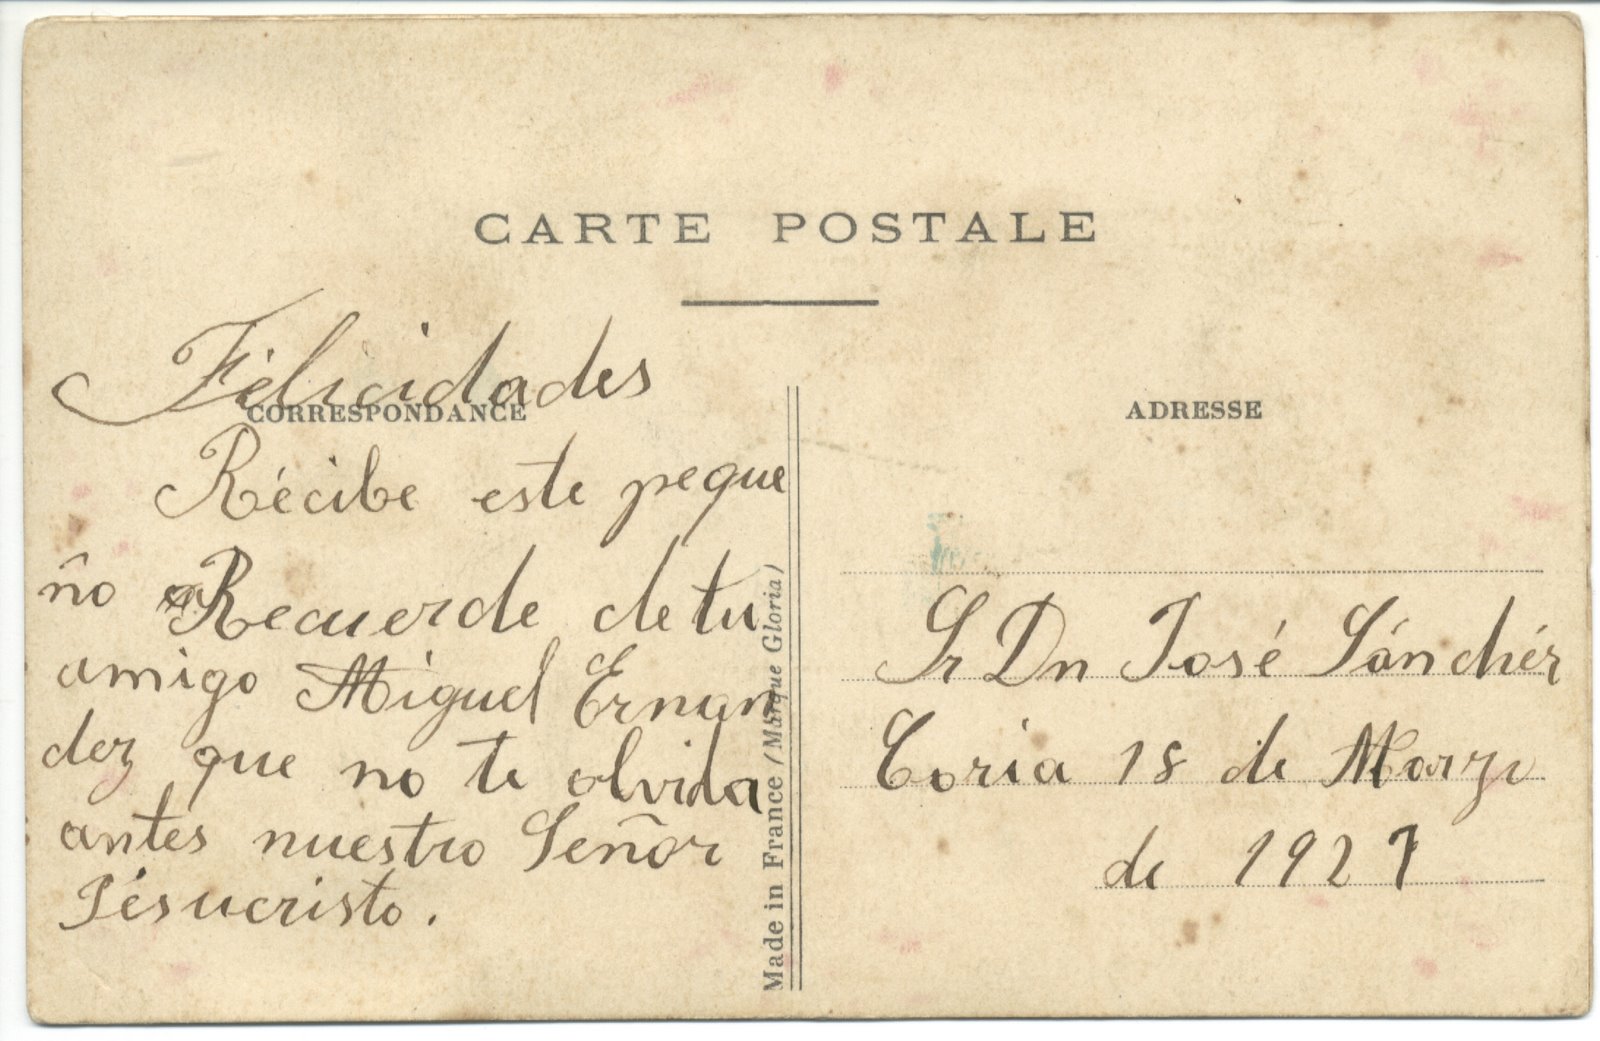 CARTE POSTALE
CORRESPONDANCE
Felicidades
Récibe este peque
ño Recuerde de tu
amigo Miguel Ernan
dez que no te olvida
antes nuestro Señor
Jésucristo.
Made in France (Marque Gloria)
ADRESSE
Sr Dn José Sánchéz
Coria 18 de Marzo
de 1927